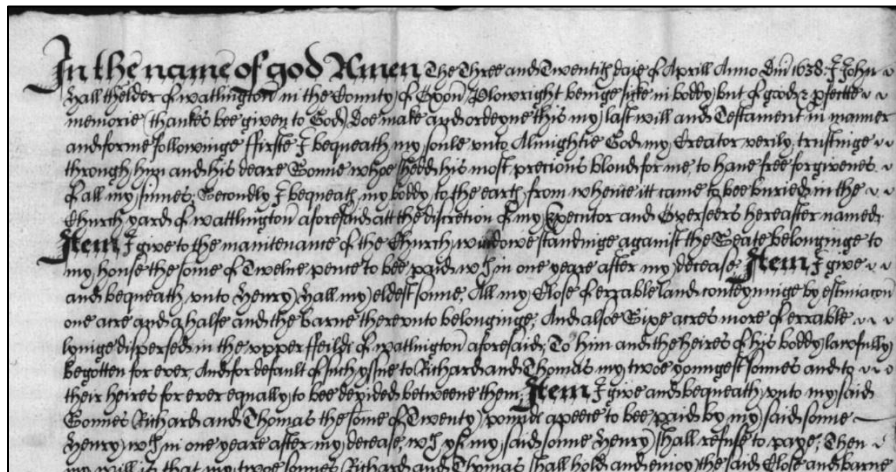 In the name of god Amen The Three and Twentith daie of Aprill Anno Dni 1638: I John
Hall thelder of watlington in the County of Oxon Plowright beinge sicke in boddy, but of good & pfecte
memorie thankes bee given to God, Doe make and ordeyne this my last will and Testament in manner
and forme followinge ffirste I bequeath my soule vnto Almightie God my Creator verily trustinge
through him and his deare Sonne whoe shedd his most precious bloud for me, to have free forgivenes
of all my sinnes, Secondly I bequeath my boddy to the earth from whence itt came to bee buried in the
Church yard of wattlington aforesaid att the discretion of my Executor and Overseers hereafter named,
Item I give to the maintenance of the Church windowe standinge against the Seate belonginge to
my house the some of Twelve pence to bee paid wth in one yeare after my decease, Item I give
and bequeath vnto Henry Hall my eldest sonne, All my Close of errable land conteyninge by estimacon
one acre and a halfe and the barne therevnto belonginge, And alsoe Sixe acres more of errable
lyinge dispersed in the vpper feilds of watlington aforesaid, To him and the heires of his boddy lawfully
begotten for ever, And for default of such yssue to Richard and Thomas my twoe youngest sonnes and to
their heires for ever equally to bee devided betweene them, Item I give and bequeath vnto my said
Sonnes Richard and Thomas the some of Twenty pounds apeece to bee paid by my said sonne
Henry wth in one yeare after my decease, wch yf my said sonne Henry shall refuse to paye, Then
my will is that my twoe sonnes Richard and Thomas shall hold and enioy the said Close and barne